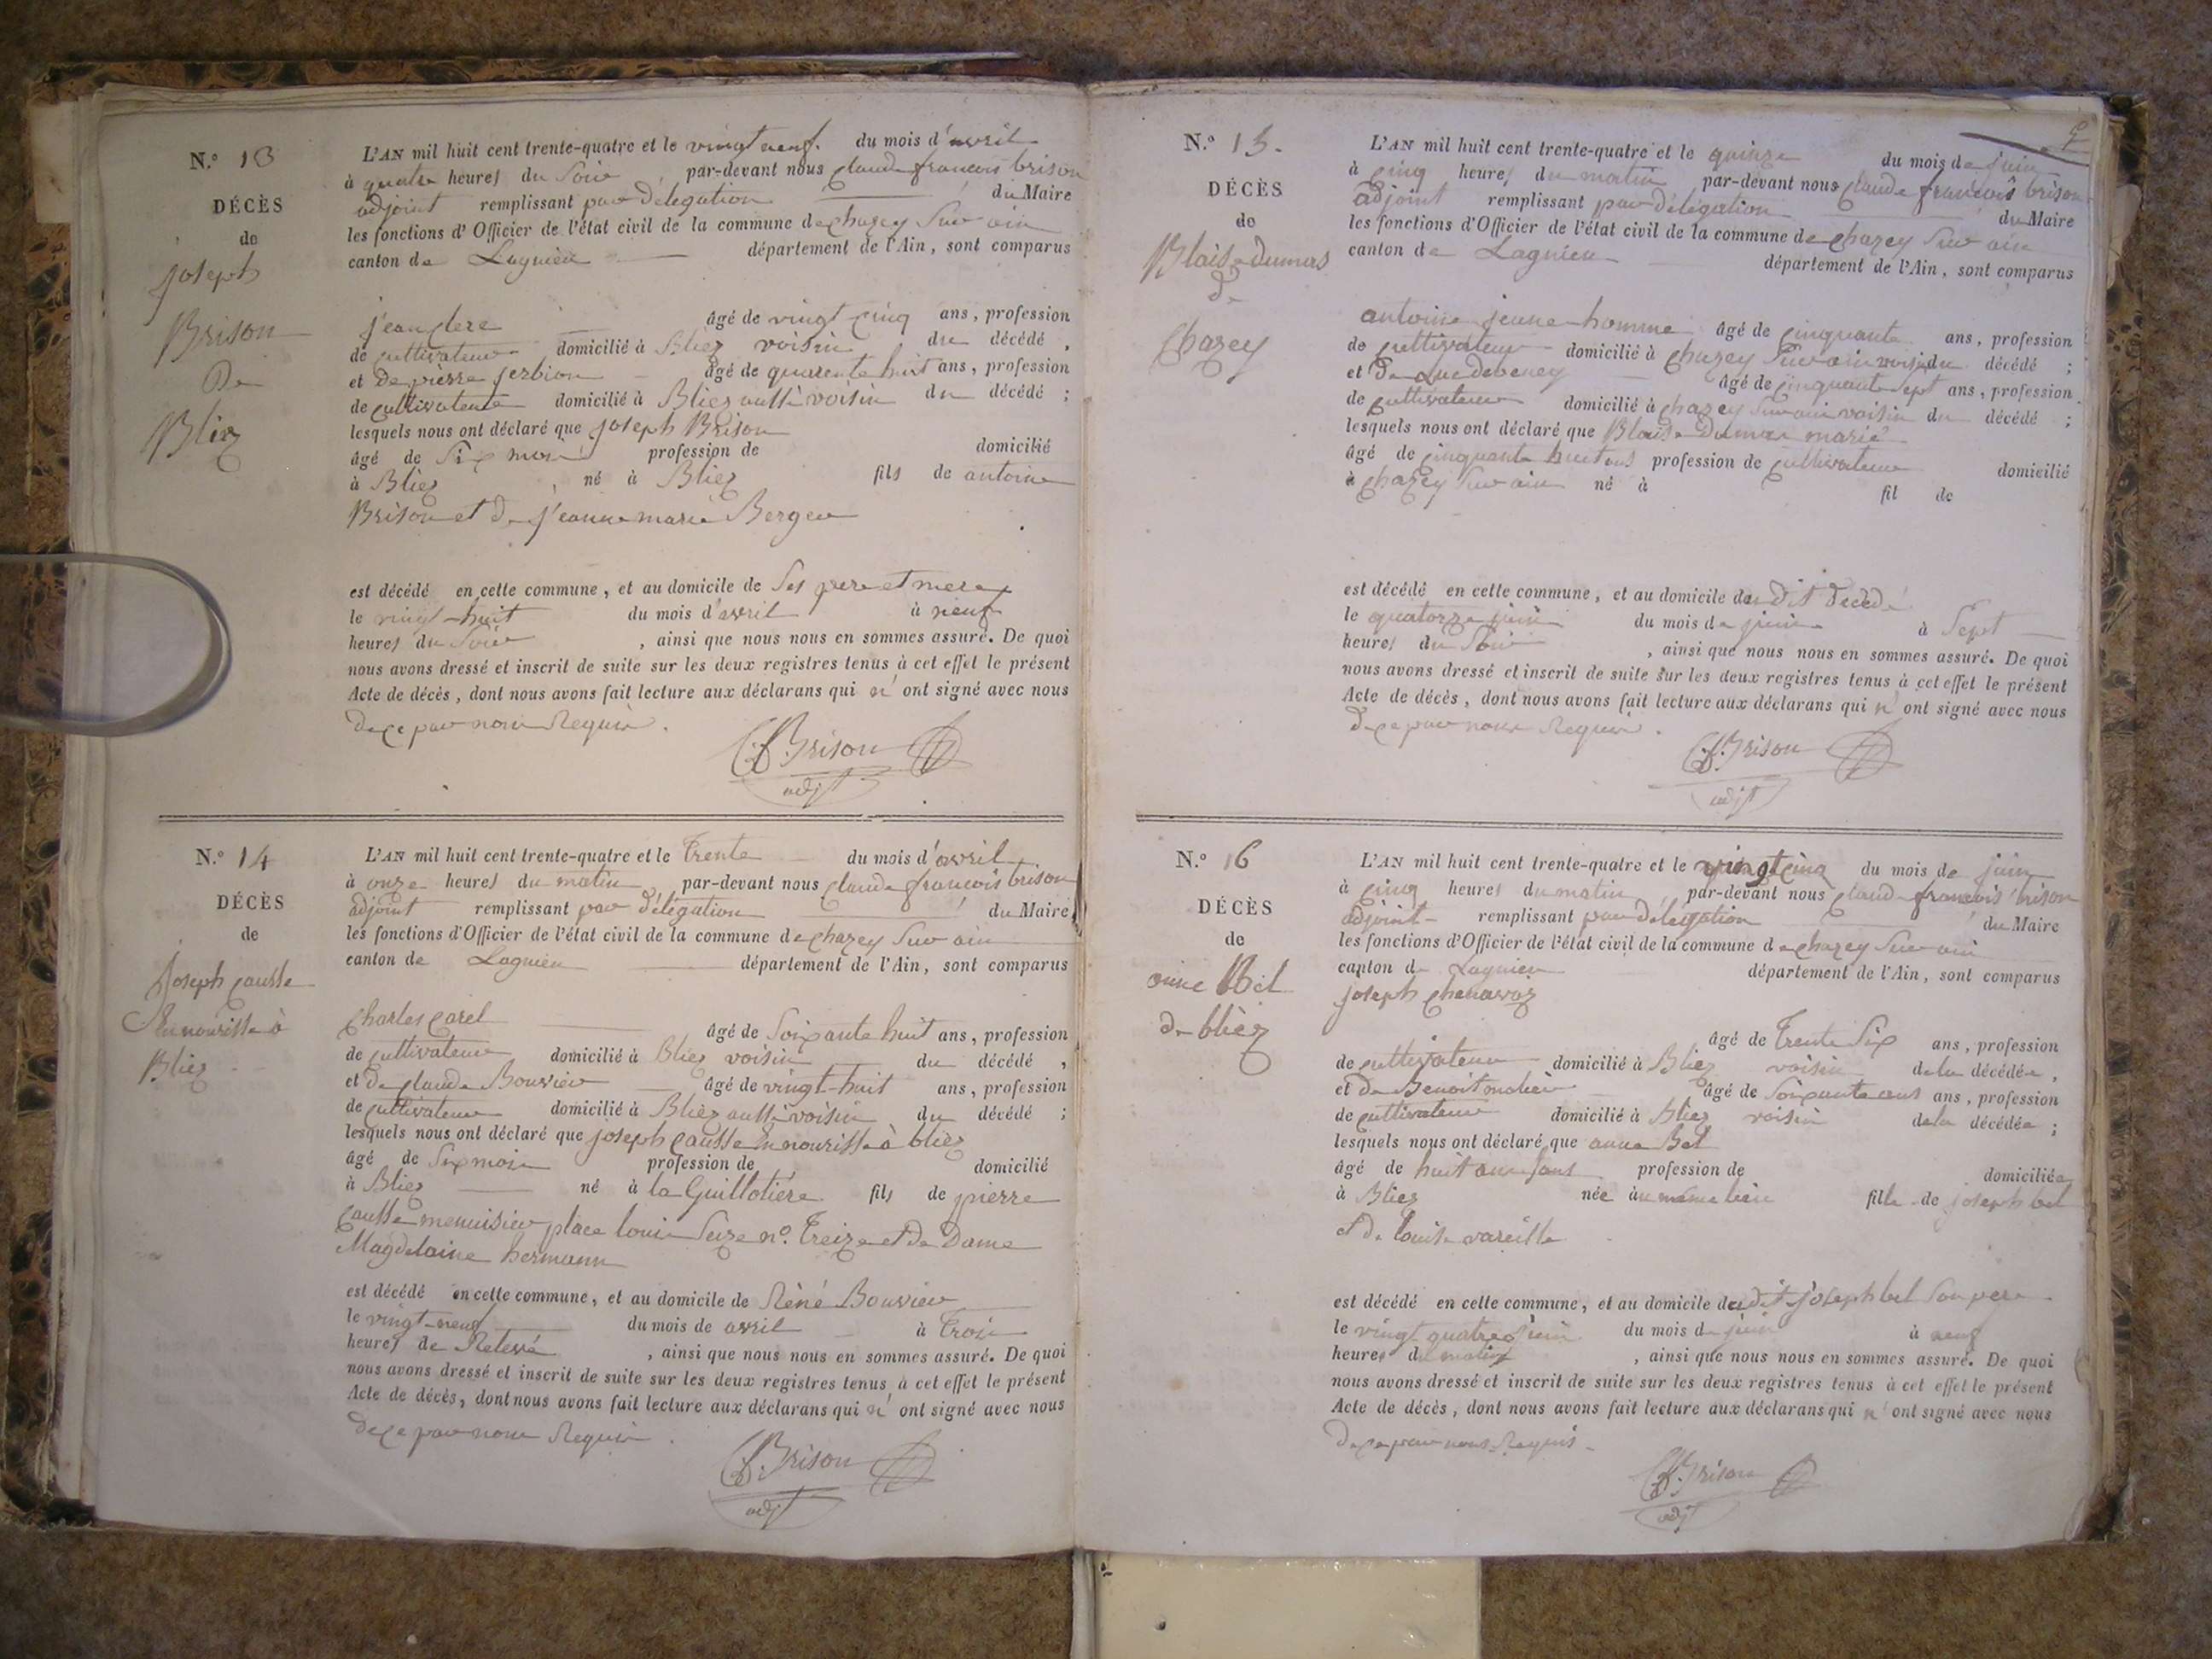 N.º 13
DÉCÈS
de
joseph
Brison
De
Bliez
L'AN mil huit cent trente-quatre et le vingt neuf. du mois d'avril
à quatre heures du Soir, par-devant nous Claude françois brison
adjoint remplissant par délégation du Maire
les fonctions d'Officier de l'état civil de la commune de chazey Sur ain
canton de Lagnieu département de l'Ain, sont comparus
jean clere âgé de vingt cinq ans, profession
de cultivateur domicilié à Bliez voisin du décédé,
et de pierre âgé de quarente huit ans, profession
de cultivateur domicilié à Bliez aussi voisin du décédé;
lesquels nous ont déclaré que joseph Brison
âgé de Six mois profession de domicilié
à Bliez, né à Bliez fils de antoine
Brison et de jeanne marie Berger
est décédé en cette commune, et au domicile de Ses pere et mere
le vingt-huit du mois d'avril à neuf
heures du Soir, ainsi que nous nous en sommes assuré. De quoi
nous avons dressé et inscrit de suite sur les deux registres tenus à cet effet le présent
Acte de décès, dont nous avons fait lecture aux déclarans qui n'ont signé avec nous
de ce par nous Requis.
Cf. Brison
adjt
N.º 14
DÉCÈS
de
Joseph causse
En nourisse à
Bliez
L'AN mil huit cent trente-quatre et le Trente du mois d'avril
à onze heures du matin par-devant nous Claude françois brison
adjoint remplissant par délégation du Maire
les fonctions d'Officier de l'état civil de la commune de chazey Sur ain
canton de Lagnieu département de l'Ain, sont comparus
Charles carel âgé de Soixante huit ans, profession
de cultivateur domicilié à Bliez voisin du décédé,
et de Claude Bouvier âgé de vingt-huit ans, profession
de cultivateur domicilié à Bliez aussi voisin du décédé;
lesquels nous ont déclaré que joseph causse En nourisse à bliez
âgé de Six mois profession de domicilié
à Bliez né à la Guillotiére fils de pierre
causse menuisier place louis Seize nº. Treize et de Dame
Magdelaine hermann
est décédé en cette commune, et au domicile de Réné Bouvier
le vingt-neuf du mois de avril à Trois
heures de Relevé, ainsi que nous nous en sommes assuré. De quoi
nous avons dressé et inscrit de suite sur les deux registres tenus à cet effet le présent
Acte de décès, dont nous avons fait lecture aux déclarans qui n'ont signé avec nous
de ce par nous Requis.
Cf. Brison
adjt
N.º 15.
DÉCÈS
de
Blaise dumas
de
Chazey
L'AN mil huit cent trente-quatre et le quinze du mois de juin
à cinq heures du matin par-devant nous Claude françois brison
adjoint remplissant par délégation du Maire
les fonctions d'Officier de l'état civil de la commune de chazey Sur ain
canton de Lagnieu département de l'Ain, sont comparus
antoine jeune homme âgé de cinquante ans, profession
de cultivateur domicilié à chazey Sur ain voisin du décédé;
et De Luc debeney âgé de cinquante Sept ans, profession
de cultivateur domicilié à chazey Sur ain voisin du décédé;
lesquels nous ont déclaré que Blaise dumas marié
âgé de cinquante huit ans profession de cultivateur domicilié
à chazey Sur ain né à fil de
est décédé en cette commune, et au domicile du dit décédé
le quatorze juin du mois de juin à Sept
heures du Soir, ainsi que nous nous en sommes assuré. De quoi
nous avons dressé et inscrit de suite sur les deux registres tenus à cet effet le présent
Acte de décès, dont nous avons fait lecture aux déclarans qui n'ont signé avec nous
de ce par nous Requis.
Cf. Brison
adjt
N.º 16
DÉCÈS
de
anne Bel
de bliez
L'AN mil huit cent trente-quatre et le vingt cinq du mois de juin
à cinq heures du matin, par-devant nous Claude françois brison
adjoint remplissant par délégation du Maire
les fonctions d'Officier de l'état civil de la commune de chazey Sur ain
canton de Lagnieu département de l'Ain, sont comparus
joseph chenavaz
âgé de Trente Six ans, profession
de cultivateur domicilié à Bliez voisin de la décédée,
et de Benoit âgé de Soixante ans ans, profession
de cultivateur domicilié à Bliez voisin de la décédée;
lesquels nous ont déclaré que anne Bel
âgé de huit ans profession de domiciliée
à Bliez née au même lieu fille de joseph bel
et de louise vareille
est décédé en cette commune, et au domicile dudit joseph bel Son pere
le vingt quatre juin du mois de juin à neuf
heures du matin, ainsi que nous nous en sommes assuré. De quoi
nous avons dressé et inscrit de suite sur les deux registres tenus à cet effet le présent
Acte de décès, dont nous avons fait lecture aux déclarans qui n'ont signé avec nous
de ce par nous Requis.
Cf. Brison
adjt